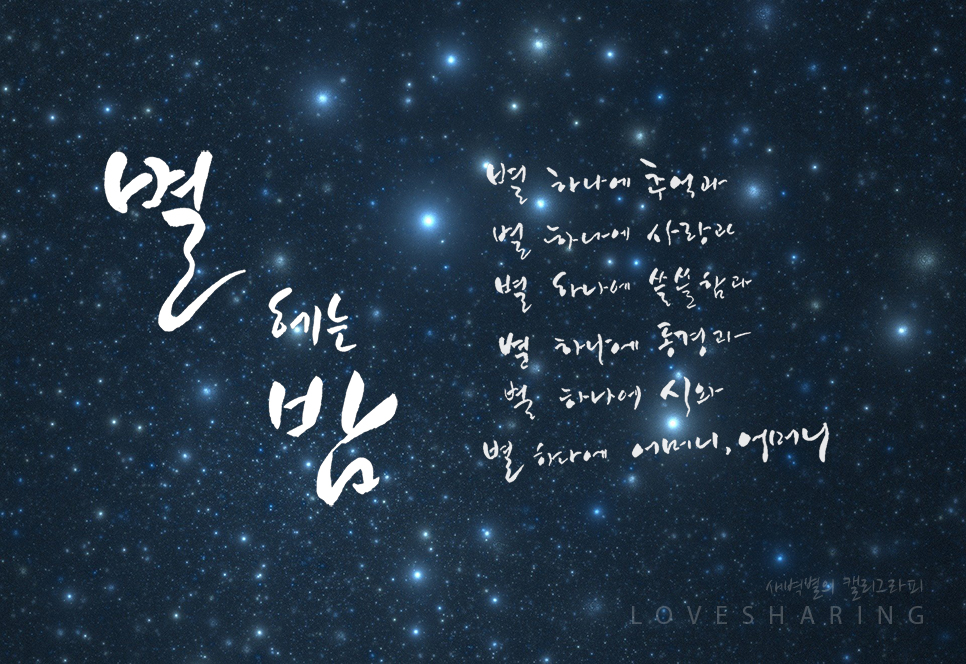 별
헤는
밤
별 하나에 추억과
별 하나에 사랑과
별 하나에 쓸쓸함과
별 하나에 동경과
별 하나에 시와
별 하나에 어머니, 어머니
새벽별의 캘리그라피
LOVESHARING